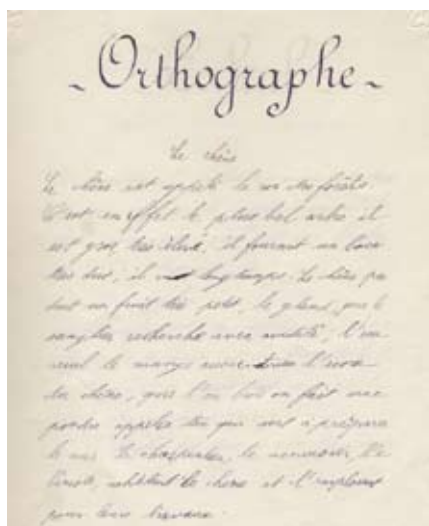 ~ Orthographe ~
Le chêne
Le chêne est appelé le roi des forêts.
C'est en effet le plus bel arbre il
est gros très élevé, il fournit un bois
très dur, il vit longtemps. Le chêne pro
duit un fruit très petit, le gland, que le
sanglier recherche avec avidité, l'écu
reuil le mange aussi. Avec l'écorce
du chêne, que l'on on fait une
poudre appelée tan qui sert à préparer
le cuir. Le charpentier, le menuisier, l'é
béniste, achètent le chêne et l'emploient
pour leurs travaux.